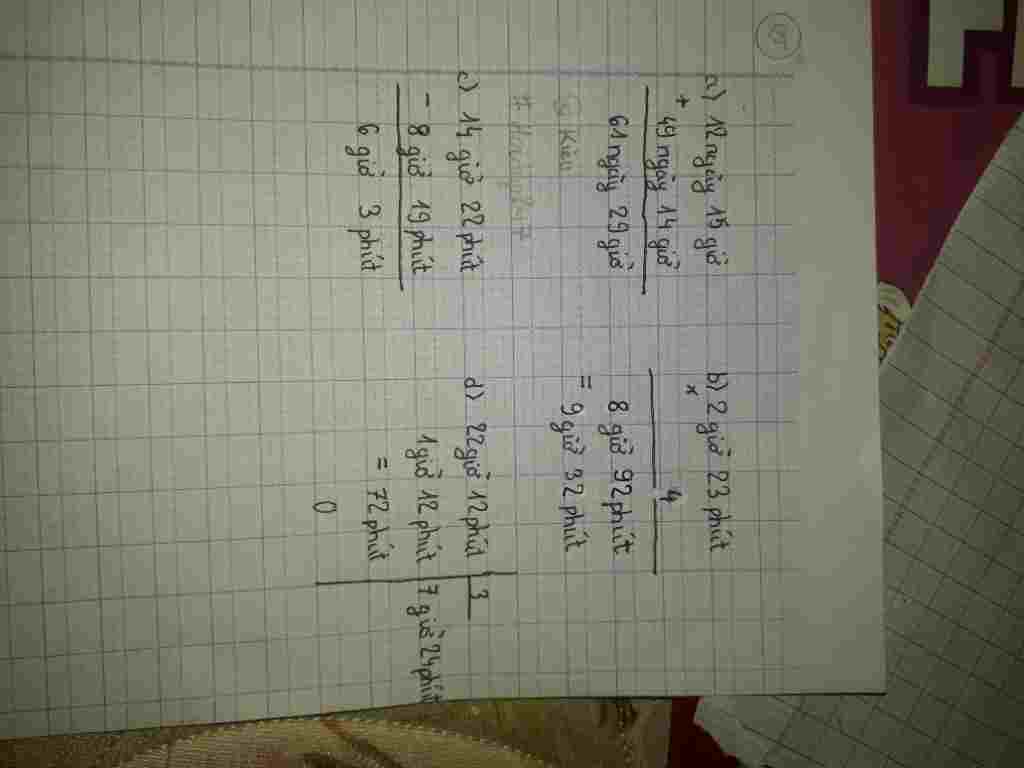 a) 12 ngày 15 giờ
+
49 ngày 14 giờ
61 ngày 29 giờ
b) 2 giờ 23 phút
x
4
8 giờ 92 phút
= 9 giờ 32 phút
c) 14 giờ 22 phút
- 8 giờ 19 phút
6 giờ 3 phút
d) 22 giờ 12 phút 3
1 giờ 12 phút 7 giờ 24 phút
= 72 phút
0